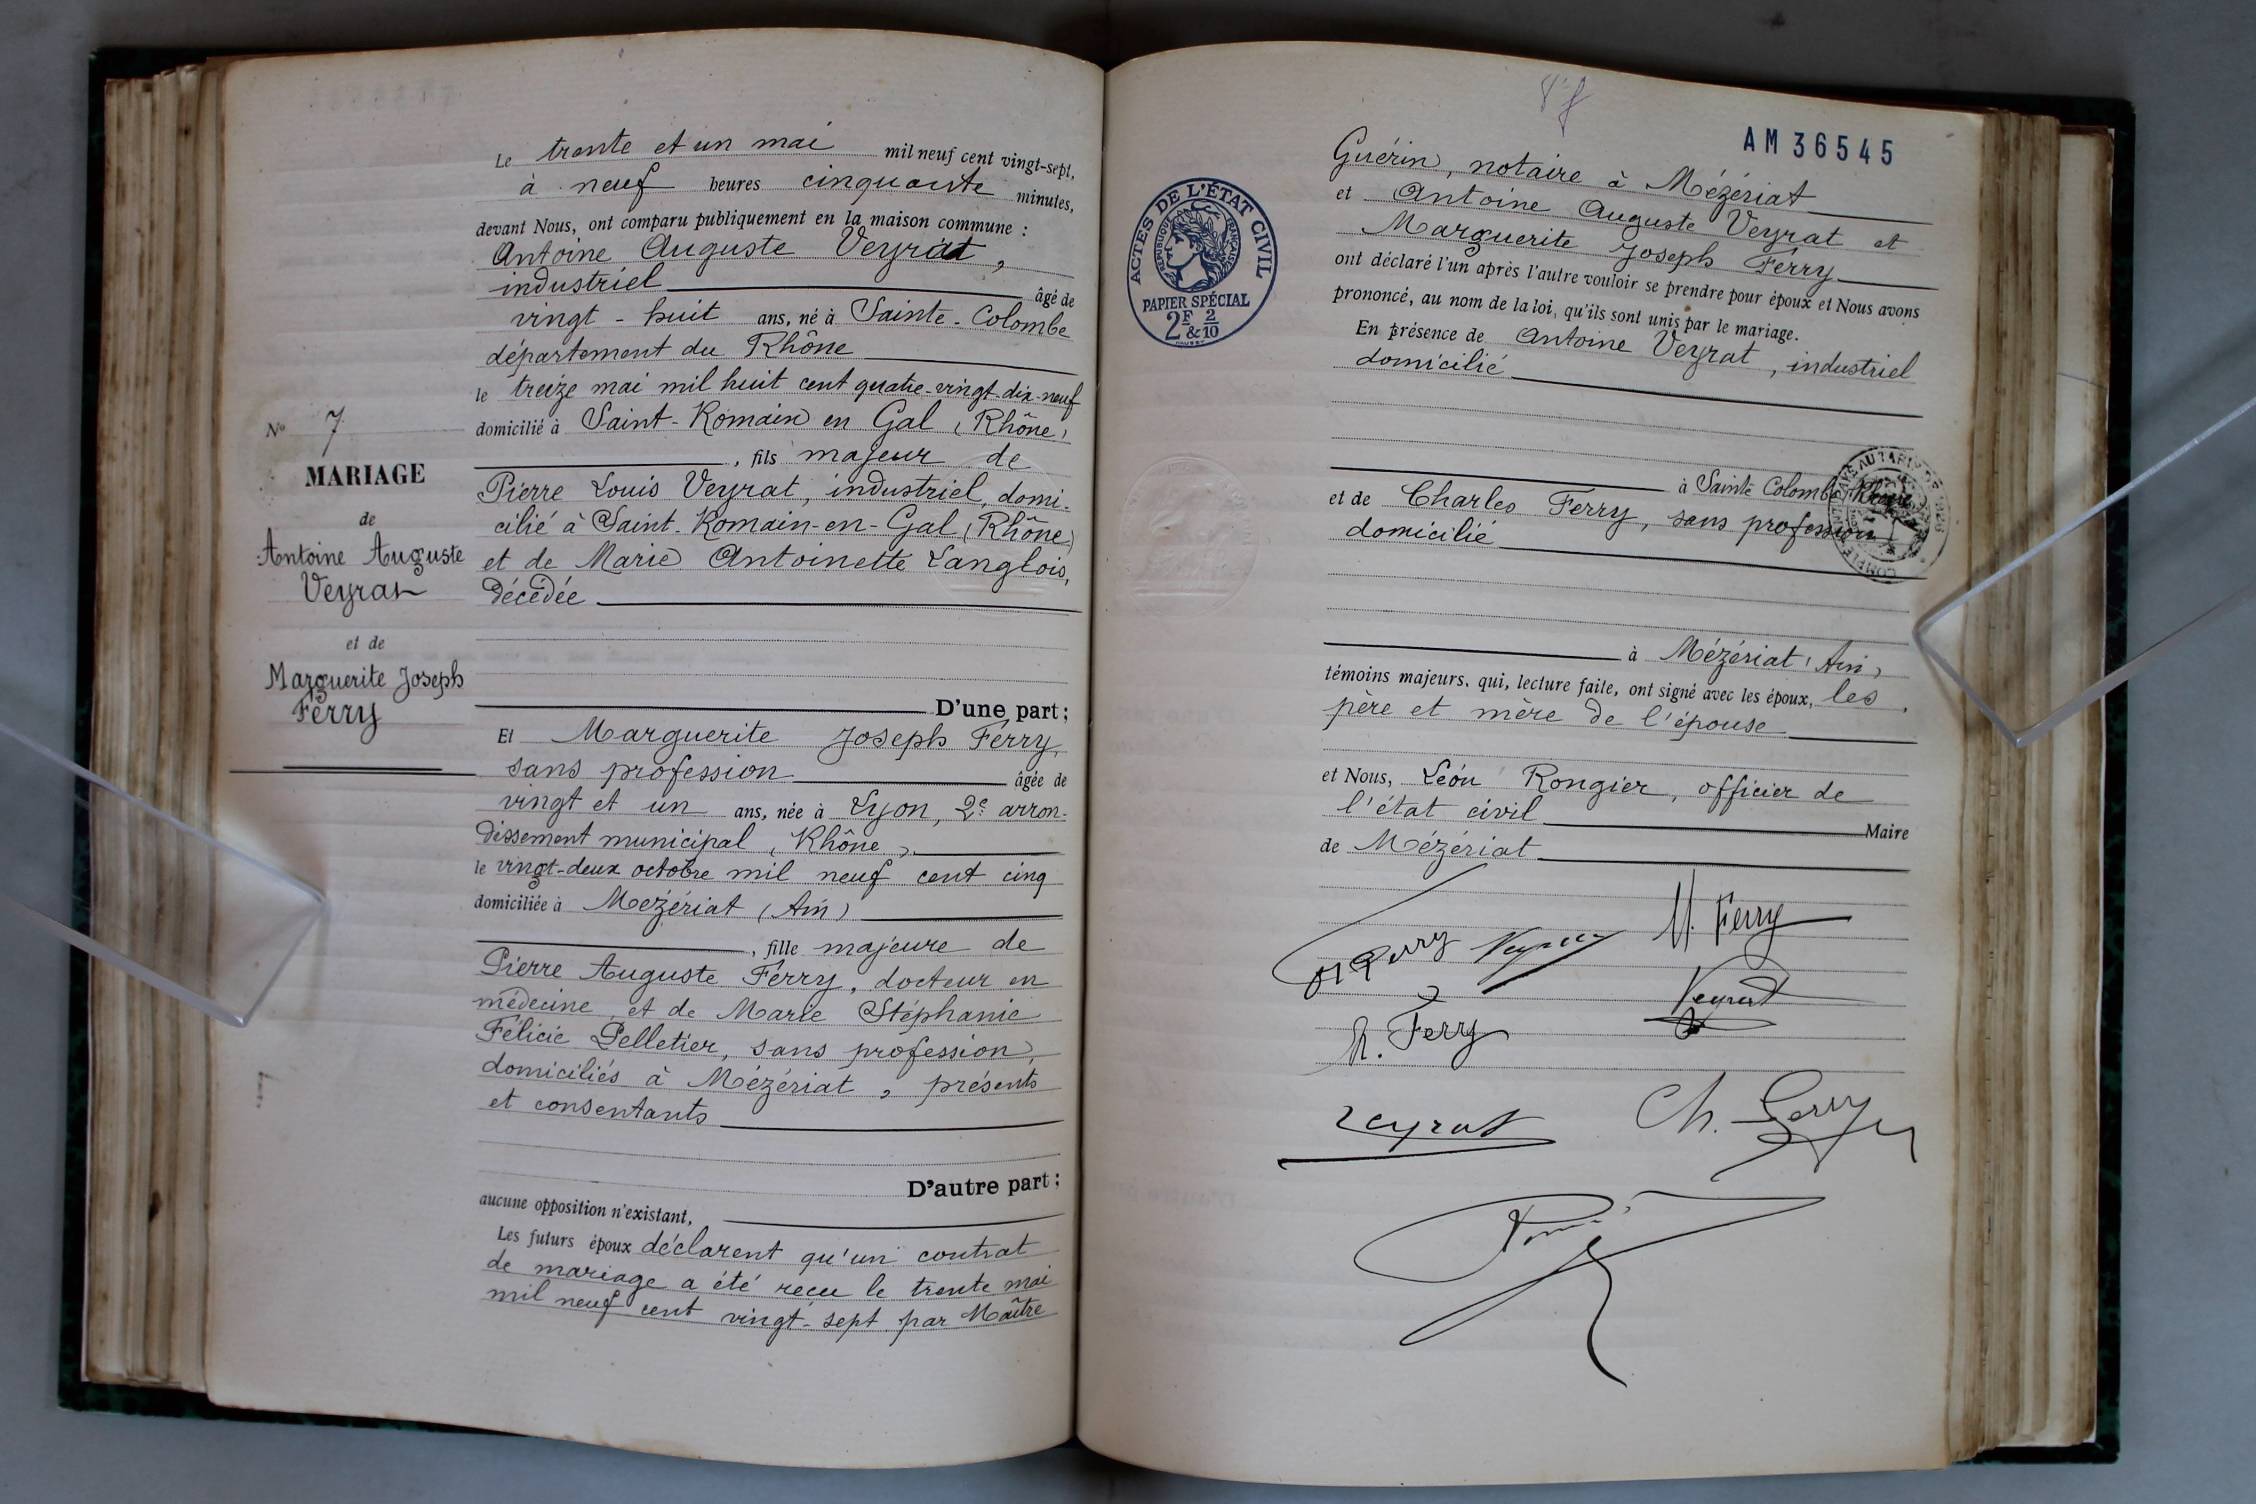 N° 7
MARIAGE
de
Antoine Auguste
Veyrat
et de
Marguerite Joseph
Ferry
Le trente et un mai mil neuf cent vingt-sept,
à neuf heures cinquante minutes,
devant Nous, ont comparu publiquement en la maison commune :
Antoine Auguste Veyrat,
industriel âgé de
vingt-huit ans, né à Sainte-Colombe
département du Rhône
le treize mai mil huit cent quatre-vingt-dix-neuf
domicilié à Saint-Romain en Gal (Rhône)
, fils majeur de
Pierre Louis Veyrat, industriel, domi-
cilié à Saint-Romain-en-Gal (Rhône)
et de Marie Antoinette Langlois,
décédée
D'une part ;
Et Marguerite Joseph Ferry,
sans profession âgée de
vingt et un ans, née à Lyon, 2e arron-
dissement municipal (Rhône),
le vingt-deux octobre mil neuf cent cinq
domiciliée à Mézériat (Ain)
, fille majeure de
Pierre Auguste Ferry, docteur en
médecine, et de Marie Stéphanie
Félicie Pelletier, sans profession,
domiciliés à Mézériat, présents
et consentants
D'autre part ;
aucune opposition n'existant,
Les futurs époux déclarent qu'un contrat
de mariage a été reçu le trente mai
mil neuf cent vingt-sept par Maître
AM 36545
ACTES DE L'ÉTAT CIVIL
RÉPUBLIQUE FRANÇAISE
PAPIER SPÉCIAL
2F & 2/10
Guérin, notaire à Mézériat
et Antoine Auguste Veyrat et
Marguerite Joseph Ferry
ont déclaré l'un après l'autre vouloir se prendre pour époux et Nous avons
prononcé, au nom de la loi, qu'ils sont unis par le mariage.
En présence de Antoine Veyrat, industriel
domicilié
à Sainte Colombe (Rhône)
et de Charles Ferry, sans profession
domicilié
à Mézériat (Ain)
témoins majeurs, qui, lecture faite, ont signé avec les époux, les
père et mère de l'épouse
et Nous, Léon Rongier, officier de
l'état civil Maire
de Mézériat
M. Ferry
Ferry
Veyrat
Ferry
Veyrat
Ch. Ferry